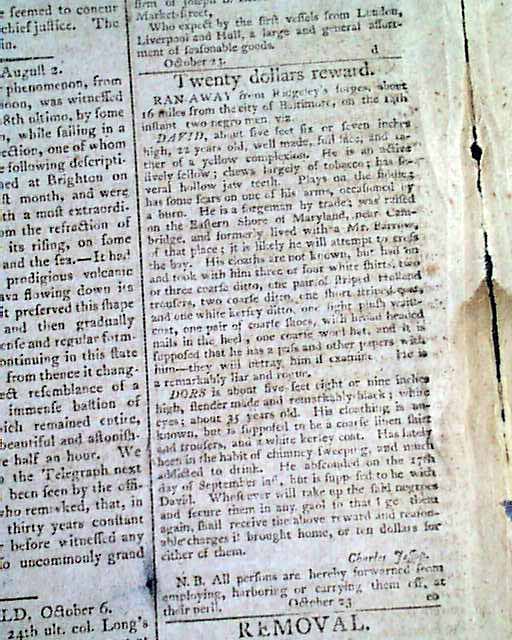 e seemed to concur
chief justice. The
in.
August 2.
phenomenon, from
noon, was witnessed
8th ultimo, by some
n, while sailing in a
ection, one of whom
e following descripti-
ned at Brighton on
st month, and were
th a most extraordi-
om the refraction of
its rising, on some
and the sea.—It had
prodigious volcanic
ava flowing down its
it preserved this shape
and then gradually
ense and regular form.
ontinuing in this state
from thence it chang-
ect resemblance of a
immense bastion of
ich remained entire,
beautiful and astonish-
e half an hour. We
o the Telegraph next
been seen by the offi-
who remarked, that, in
thirty years constant
r before witnessed any
so uncommonly grand
LD, October 6.
24th ult. col. Long's
Market-street,
Who expect by the first vessels from London,
Liverpool and Hull, a large and general assort-
ment of seasonable goods.
October 23. d
Twenty dollars reward.
RAN-AWAY from Ridgeley's forges, about
16 miles from the city of Baltimore, on the 14th
instant two negro men, viz.
DAVID, about five feet six or seven inches
high, 22 years old, well made, full face, and ra-
ther of a yellow complexion. He is an active
lively fellow; chews largely of tobacco; has se-
veral hollow jaw teeth. Plays on the fiddle;
has some scars on one of his arms, occasioned by
a burn. He is a forgeman by trade; was raised
on the Eastern Shore of Maryland, near Cam-
bridge, and formerly lived with a Mr. Barrow,
of that place; it is likely he will attempt to cross
the bay. His cloaths are not known, but had on
and took with him three or four white shirts, two
or three coarse ditto, one pair of striped Holland
trousers, two coarse ditto, one short striped coat,
and one white kersey ditto, one plush waist-
coat, one pair of coarse shoes, with broad headed
nails in the heel, one coarse wool hat, and it is
supposed that he has a pass and other papers with
him—they will betray him if examined. He is
a remarkably liar and rogue.
DORS is about five feet eight or nine inches
high, slender made and remarkably black; white
eyes; about 35 years old. His cloathing is un-
known, but is supposed to be a coarse linen shirt
and trousers, and a white kersey coat. Has lately
been in the habit of chimney sweeping, and much
addicted to drink. He absconded on the 17th
day of September last, but is supposed to be with
David. Whosoever will take up the said negroes
and secure them in any gaol so that I get them
again, shall receive the above reward and reason-
able charges if brought home, or ten dollars for
either of them.
Charles
N. B. All persons are hereby forwarned from
employing, harboring or carrying them off, at
their peril. October 23 eo
REMOVAL.